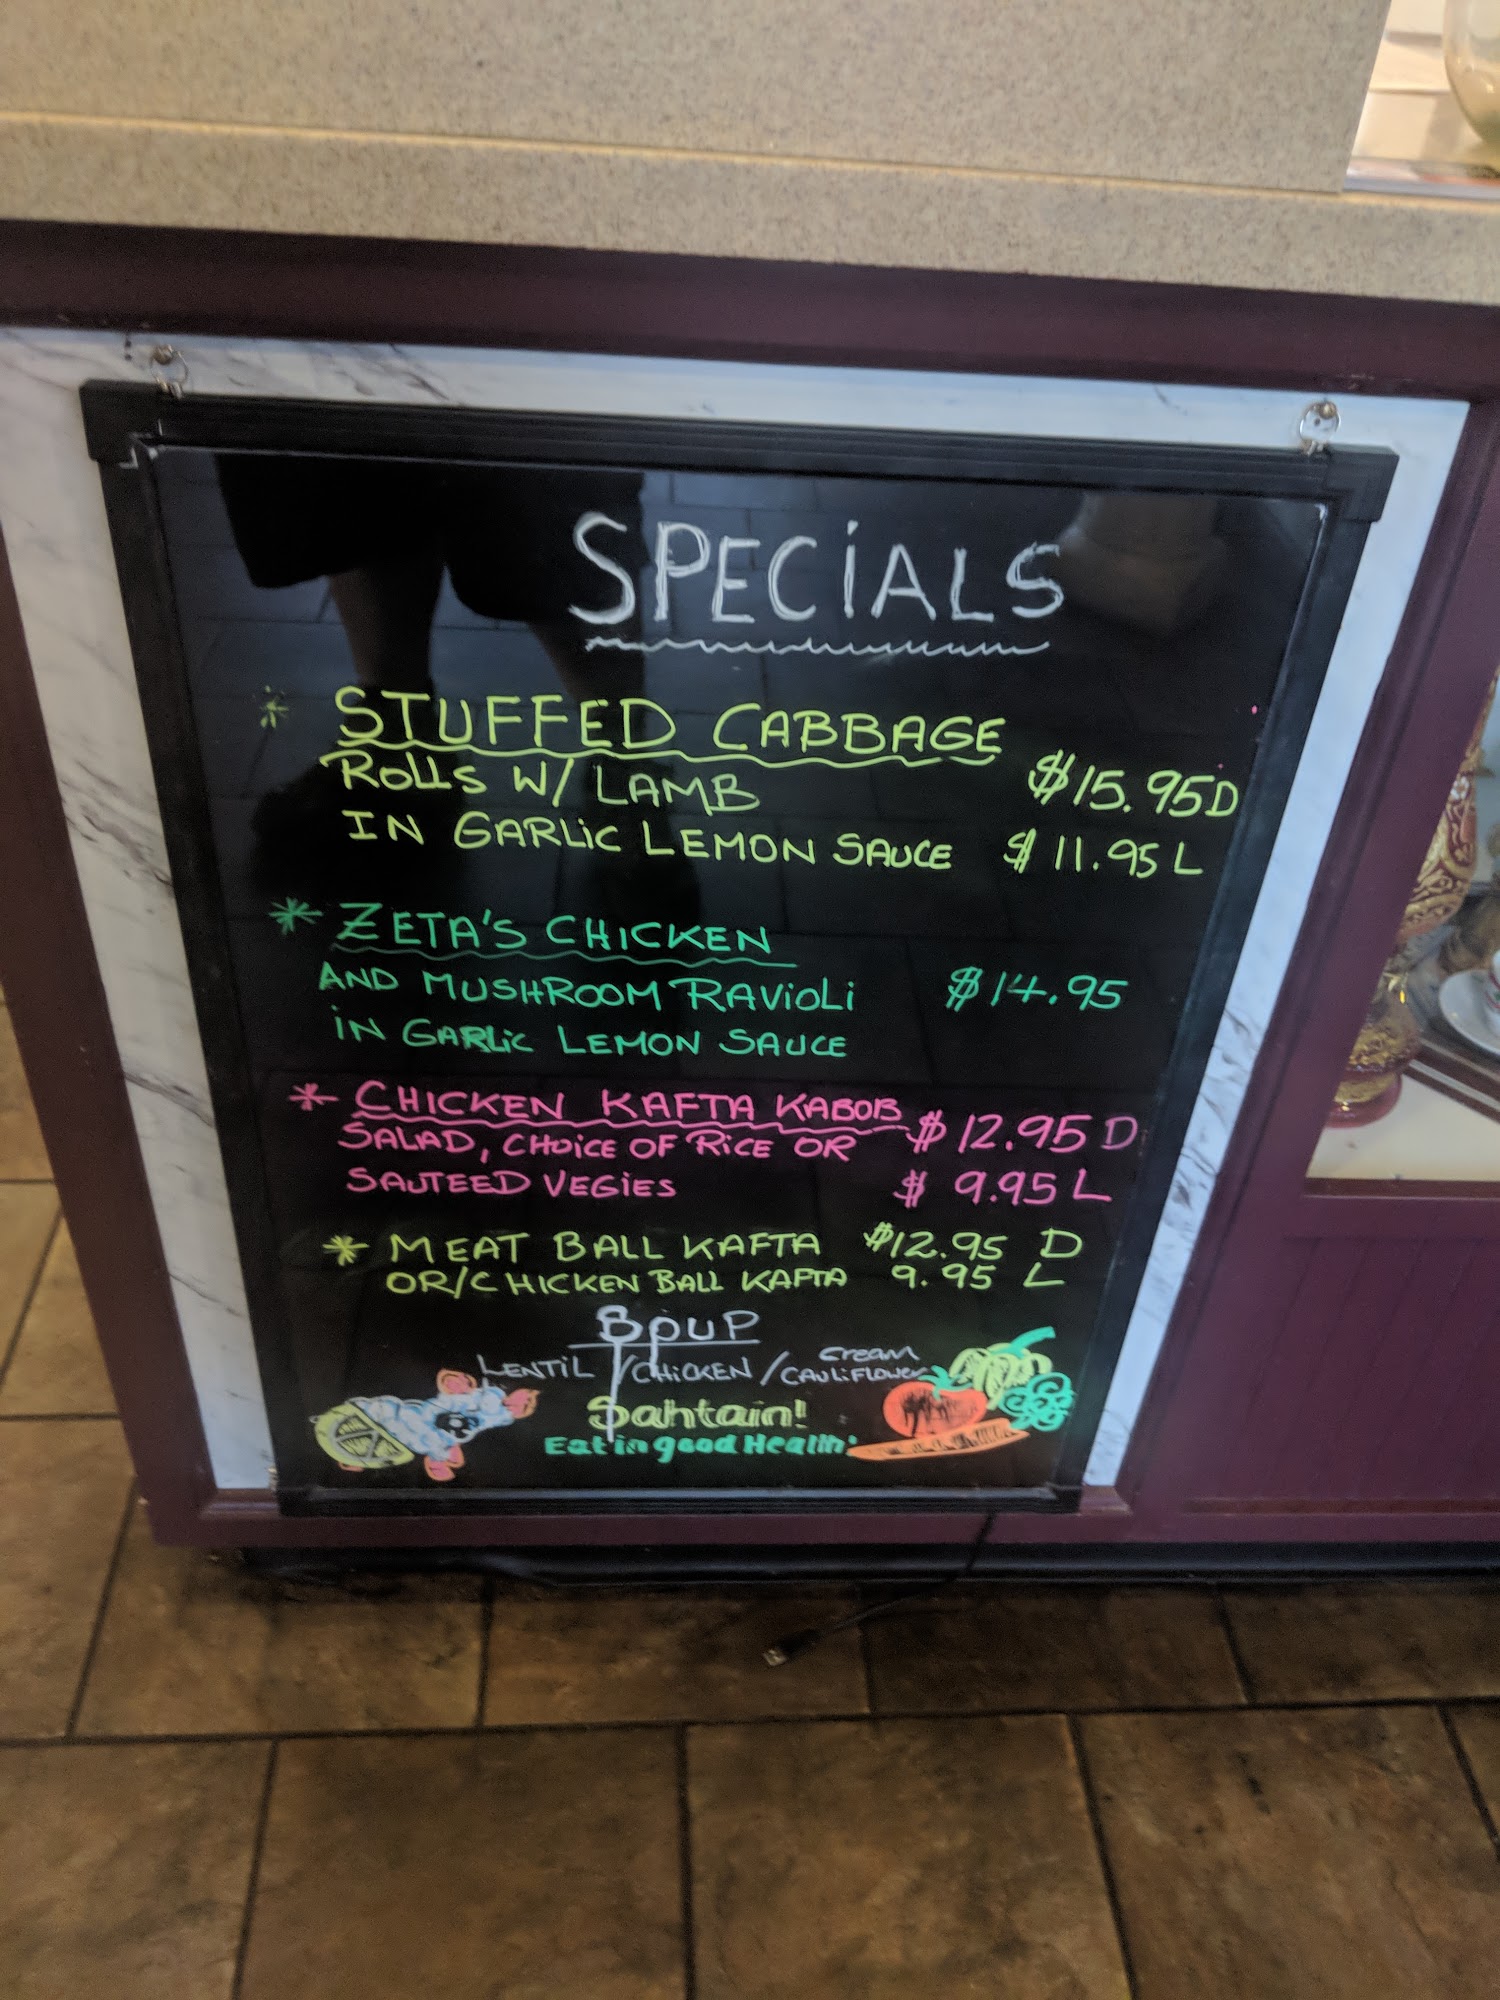 SPECIALS
* STUFFED CABBAGE
ROLLS W/ LAMB $15.95 D
IN GARLIC LEMON SAUCE $11.95 L
* ZETA'S CHICKEN
AND MUSHROOM RAVIOLI $14.95
IN GARLIC LEMON SAUCE
* CHICKEN KAFTA KABOB $12.95 D
SALAD, CHOICE OF RICE OR
SAUTEED VEGIES $9.95 L
* MEAT BALL KAFTA $12.95 D
OR/CHICKEN BALL KAFTA 9.95 L
SOUP
LENTIL / CHICKEN / Cream CAULIFLOWER
Sahtain!
Eat in good Health!